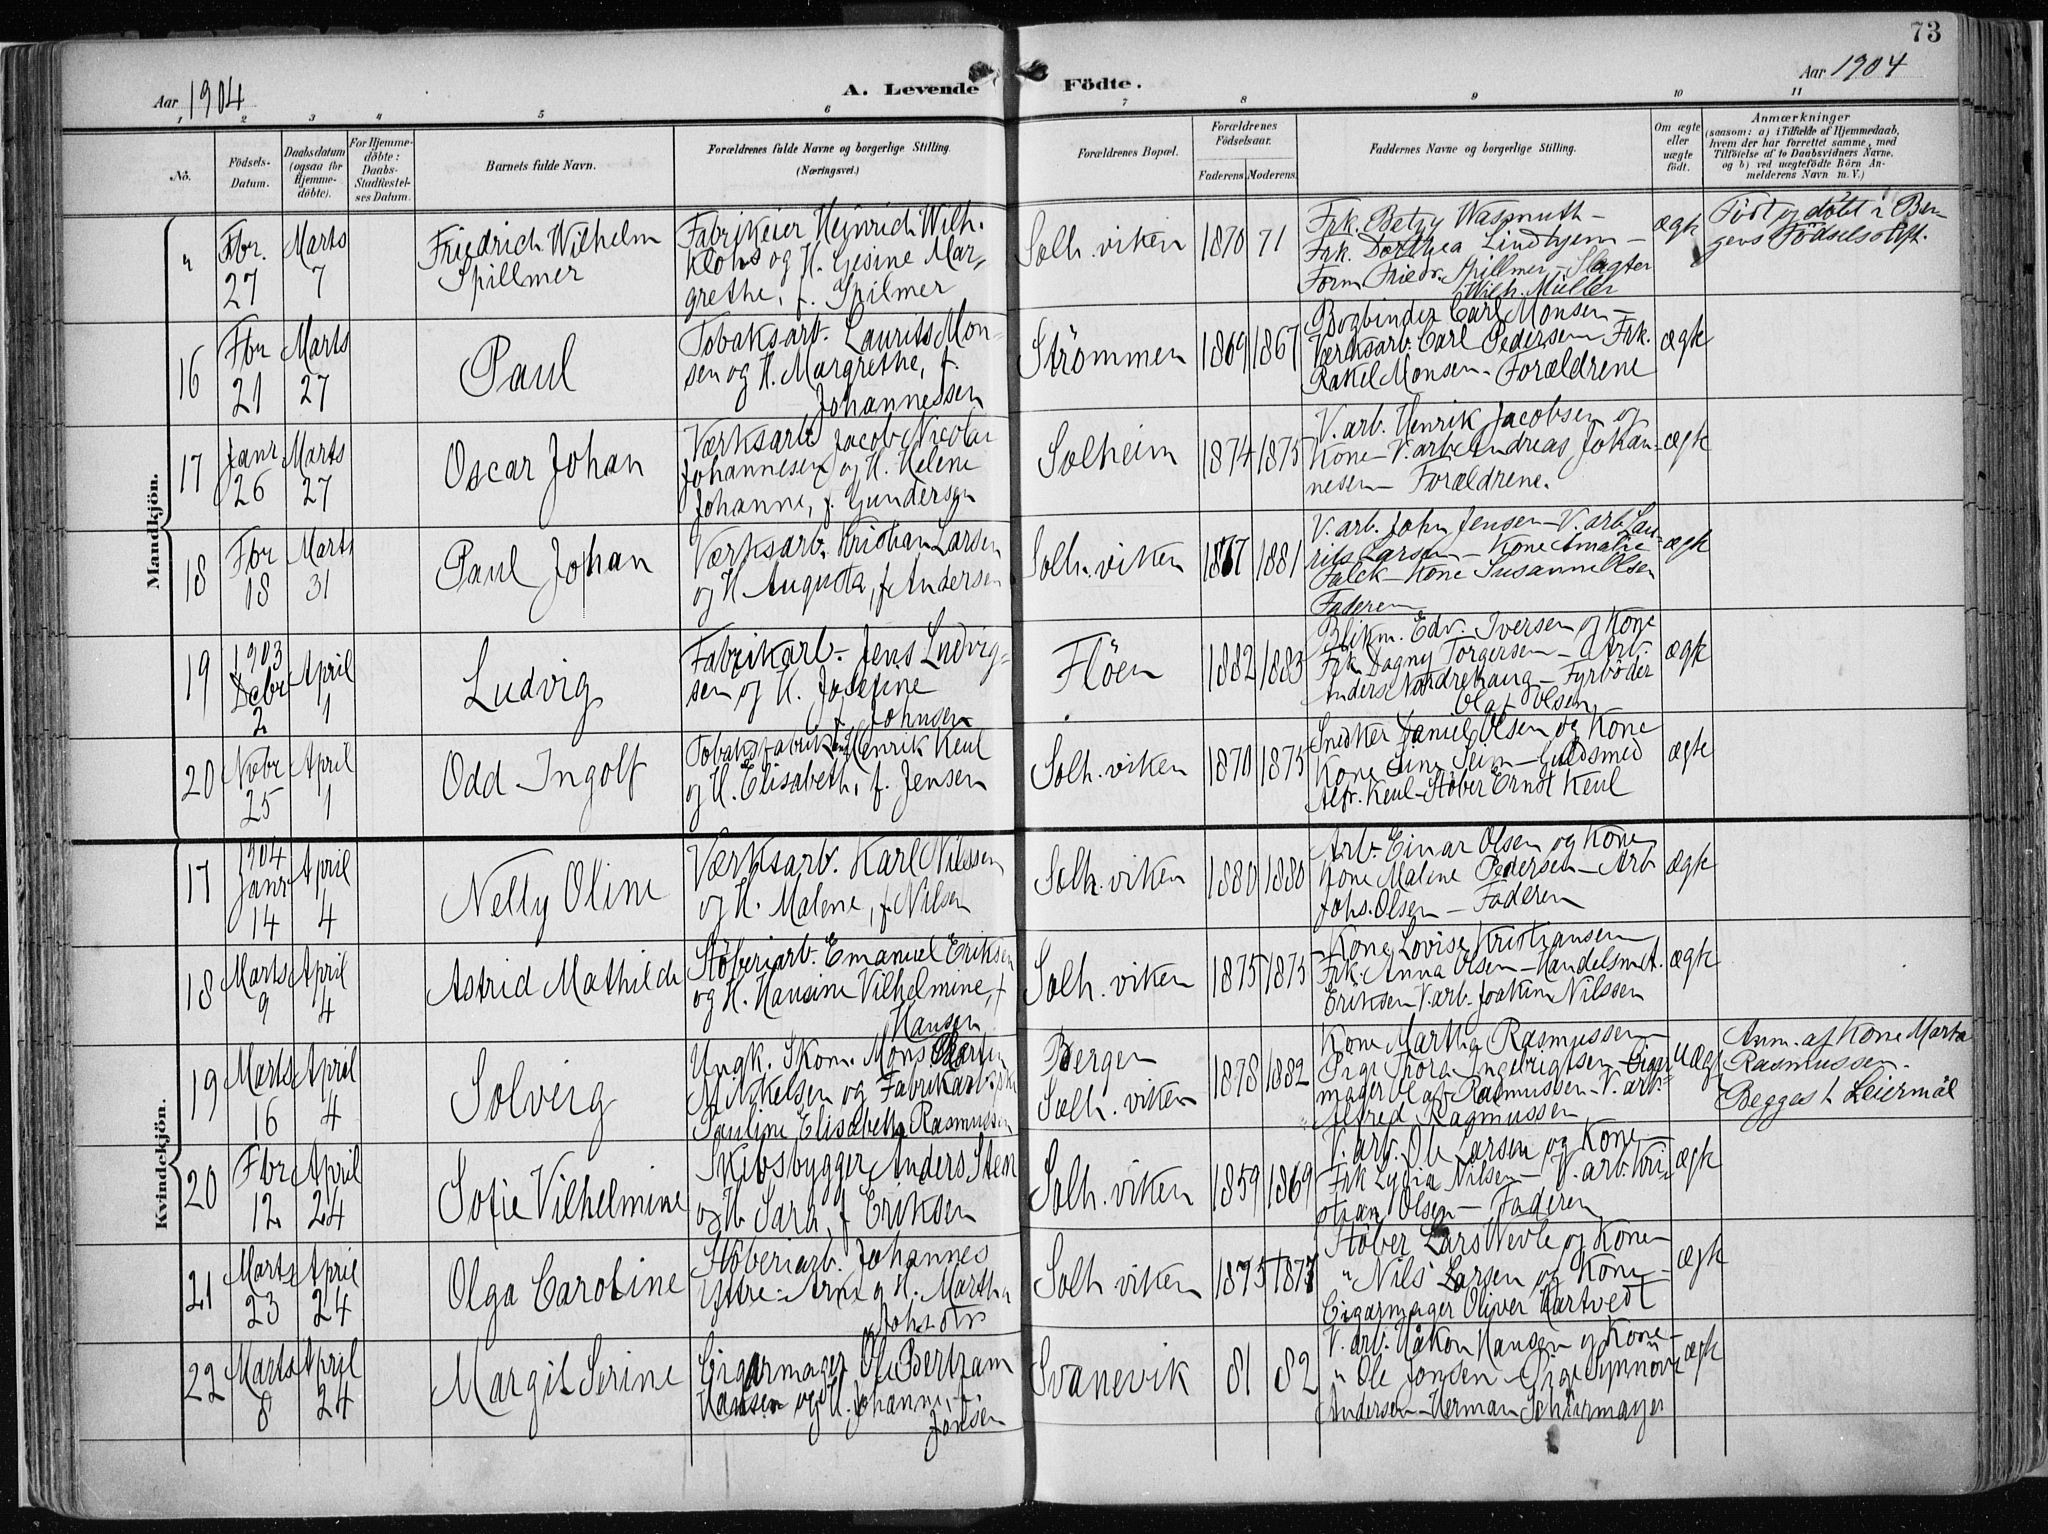 73
Aar 1904
A. Levende Födte.
Aar 1904
1 2 3 4 5 6 7 8 9 10 11
Nö.
Födsels-Datum.
Daabsdatum (ogsaa for Hjemme-döbte).
For Hjemme-döbte: Daabs-Stadfæstel-ses Datum.
Barnets fulde Navn.
Forældrenes fulde Navne og borgerlige Stilling.
(Næringsvei.)
Forældrenes Bopæl.
Forældrenes Födselsaar.
Faderens. Moderens.
Faddernes Navne og borgerlige Stilling.
Om ægte eller uægte födt.
Anmærkninger
(saasom: a) i Tilfælde af Hjemmedaab,
hvem der har forrettet samme, med
Tilföielse af to Daabsvidners Navne,
og b) ved uegtefödte Börn An-
melderens Navn m. V.)
Mandkjön.
" Fbr. 27 Marts 7
Friedrich Wilhelm
Spillmer
Fabrikeier Heinrich Wilh.
Klohs og H. Gesine Mar-
grethe, f. Spilmer
Solh. viken 1870 71
Frk. Betzy Wasmuth -
Frk. Dorthea Lindhjem -
Form. Friedr. Spillmer - Slagter
Wilh. Müller
ægte
Födt og döbt i Ber-
gens Födselsstift.
16 Fbr 21 Marts 27
Paul
Tobaksarb. Laurits Mon-
sen og H. Margrethe, f.
Johannessen
Strömmen 1869 1867
Bogbinder Carl Monsen -
Værksarb. Carl Pedersen Frk.
Rakel Monsen - Forældrene
ægte
17 Janr 26 Marts 27
Oscar Johan
Værksarb Jacob Nicolai
Johannesen og H. Helene
Johanne, f. Gundersen
Solheim 1874 1875
V. arb. Henrik Jacobsen og
Kone - V. arb Andreas Johan-
nesen - Forældrene.
ægte
18 Fbr 18 Marts 31
Paul Johan
Værksarb. Kristian Larsen
og H Augusta, f. Andersen
Solh. viken 1877 1881
V. arb. John Jensen - V. arb Lau-
rits Larsen - Kone Amalie
Falck - Kone Susanne Olsen
Faderen
ægte
19 1903 Debr 2 April 1
Ludvig
Fabrikarb - Jens Ludvig-
sen og H. Josefine
f. Johnsen
Flöen 1882 1883
Blikm. Edv. Iversen og Kone
Frk Dagny Torgersen - Arb.
Anders Nordrehaug - Fyrböder
Olaf Olsen
ægte
20 Nvbr 25 April 1
Odd Ingolf
Tobaksfabrik Henrik Keul
og H. Elisabeth, f. Jensen
Solh. viken 1870 1875
Snedker Daniel Olsen og Kone
Kone Line Seim - Guldsmed
Alfr. Keul - Stöber Ernst Keul
ægte
Kvindekjön.
17 1904 Janr 14 April 4
Nelly Oline
Værksarb. Karl Nilssen
og H. Malene, f. Nilsen
Solh. viken 1880 1880
Arb. Einar Olsen og Kone
Kone Malene Pedersen - Arb
Johs. Olsen - Faderen
ægte
18 Marts 9 April 4
Astrid Mathilde
Stöberiarb. Emanuel Eriksen
og H. Hansine Vilhelmine, f.
Hansen
Solh. viken 1875 1875
Kone Lovise Kristiansen
Frk. Anna Olsen - Handelsm A.
Eriksen V. arb. Joakim Nilssen
ægte
19 Marts 16 April 4
Solveig
Ungk. Skom. Mons Martin
Mikkelsen og Fabrikarb. pike
Pauline Elisabeth Rasmussen
Bergen
Solh. viken 1878 1882
Kone Martha Rasmussen
Pige Thora Ingebrigtsen - Cigar-
mager Olaf Rasmussen - V. arb.
Alfred Rasmussen
uægte
Anm. af Kone Marta
Rasmussen.
Begges 1. Leiermål
20 Fbr 12 April 24
Sofie Vilhelmine
Skibsbygger Anders Sten
og H. Sara, f Eriksen
Solh. viken 1859 1869
V. arb. Ole Larsen og Kone -
Frk Lydia Nilsen - V. arb Kri-
stian Olsen - Faderen
ægte
21 Marts 23 April 24
Olga Caroline
Stöberiarb. Johannes
Ytre-Arne og H. Martha
Johndtr
Solh viken 1875 1877
Stöber Lars Nevle og Kone
" Nils Larsen og Kone
Cigarmager Oliver Hartvedt
ægte
22 Marts 8 April 24
Margit Serine
Cigarmager Ole Bertram
Hansen og H. Johanne, f.
Jonsen
Svanevik 81 82
V. arb. Håkon Hansen og Kone -
" Ole Jonsen - Pige Synnöve
Andersen - Herman Schirmayer
ægte